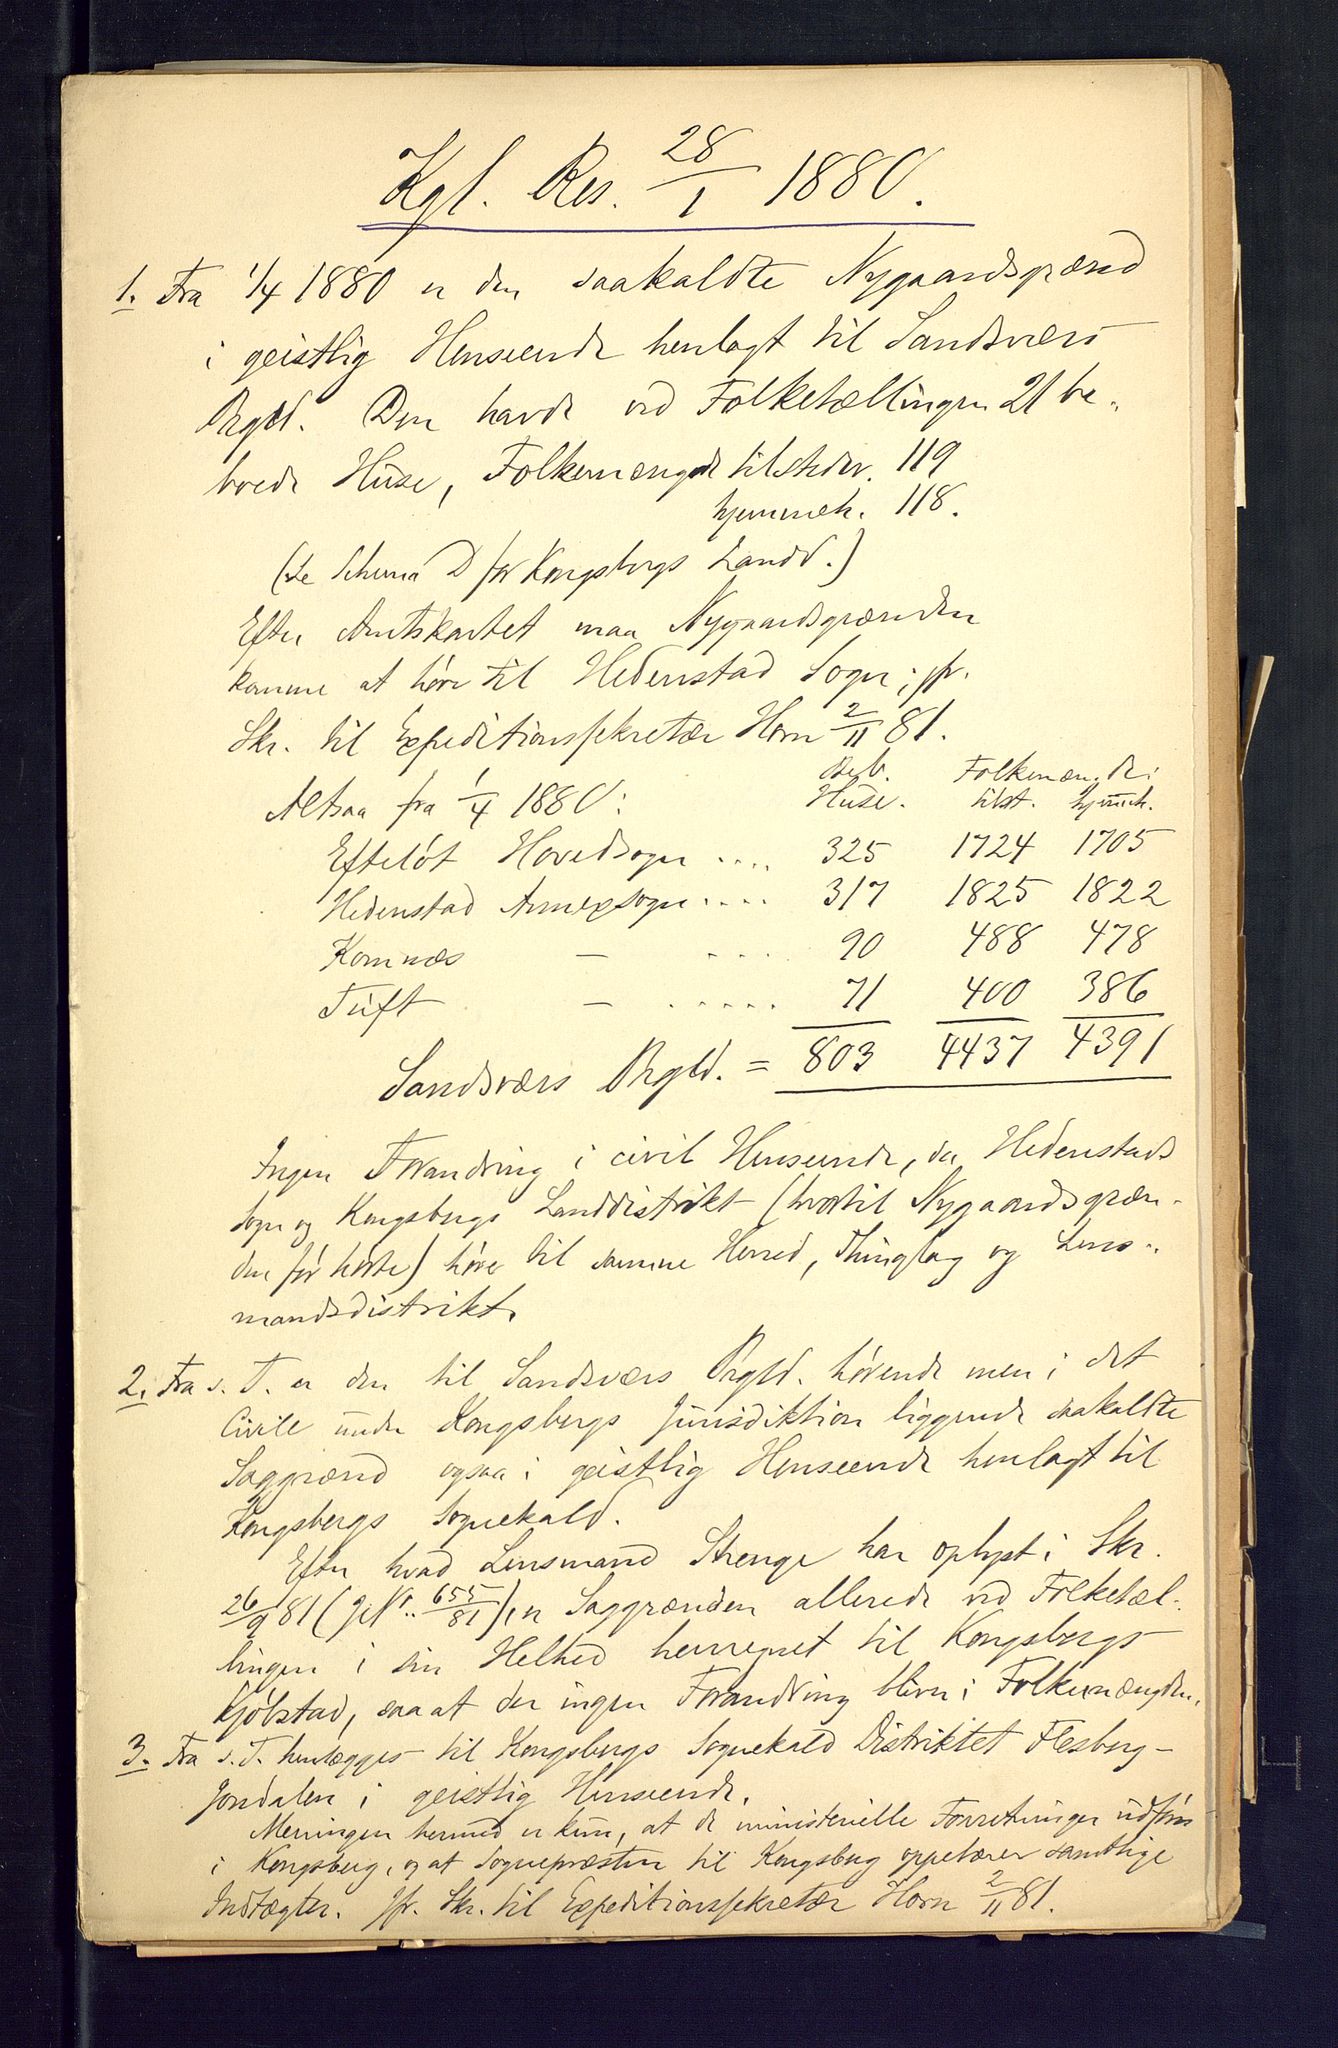 Kgl. Res. 28/1 1880.
1. Fra 1/4 1880 er den saakaldte Nygaardsgrænd
i geistlig Henseende henlagt til Sandsværs
Prgld. Den havde ved Folketællingen 21 be-
boede Huse, Folkemængde tilstedev. 119
hjemmeh. 118.
(Se Schema D for Kongsbergs Landd.)
Efter Amtskartet maa Nygaardsgrænden
komme at høre til Hedenstad Sogn; jfr.
Skr. til Expeditionssekretær Horn 2/11 81.
Beb. Folkemængde:
Altsaa fra 1/4 1880: Huse. tilst. hjemmeh.
Efteløt Hovedsogn .... 325 1724 1705
Hedenstad Annexsogn .... 317 1825 1822
Komnæs — .... 90 488 478
Tuft — ..... 71 400 386
Sandsværs Prgld. = 803 4437 4391
Ingen Forandring i civil Henseende, da Hedenstads
Sogn og Kongsbergs Landdistrikt (hvortil Nygaardsgræn-
den før hørte) høre til samme Herred, Thinglag og Lens-
mandsdistrikt.
2. Fra s. T. er den til Sandsværs Prgld. hørende men i det
Civile under Kongsbergs Jurisdiktion liggende saakaldte
Saggrænd ogsaa i geistlig Henseende henlagt til
Kongsbergs Sognekald.
Efter hvad Lensmand Strenge har oplyst i Skr.
26/9 81 (J.Nr. 655/81), er Saggrænden allerede ved Folketæl-
lingen i sin Helhed henregnet til Kongsbergs
Kjøbstad, saa at der ingen Forandring bliver i Folkemængden.
3. Fra s. T. henlægges til Kongsbergs Sognekald Distriktet Flesberg-
Jondalen i geistlig Henseende.
Meningen hermed er kun, at de ministerielle Forretninger udføres
i Kongsberg, og at Sognepræsten til Kongsberg oppebærer samtlige
Indtægter. Jfr. Skr. til Expeditionssekretær Horn 2/11 81.